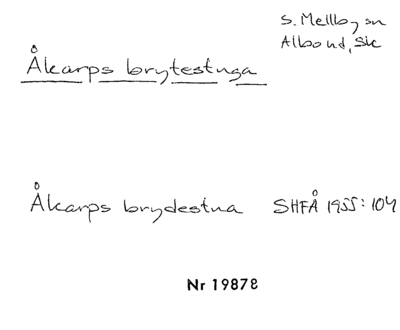 S. Mellby sn
Albo hd, Sk
Åkarps brytestuga
Åkarps brydestua SHFÅ 1955:104
Nr 19878